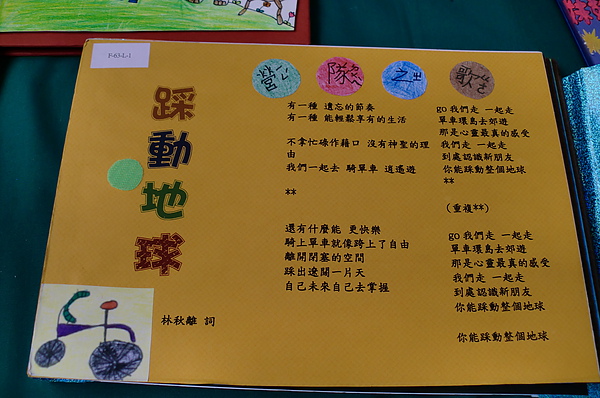 F-63-L-1
踩動地球
營隊之歌
林秋離 詞
有一種 遺忘的節奏
有一種 能輕鬆享有的生活
不拿忙碌作藉口 沒有神聖的理
由
我們一起去 騎單車 逍遙遊
**
還有什麼能 更快樂
騎上單車就像跨上了自由
離開閉塞的空間
踩出遼闊一片天
自己未來自己去掌握
go我們走 一起走
單車環島去郊遊
那是心靈最真的感受
我們走 一起走
到處認識新朋友
你能踩動整個地球
**
(重複**)
go我們走 一起走
單車環島去郊遊
那是心靈最真的感受
我們走 一起走
到處認識新朋友
你能踩動整個地球
你能踩動整個地球